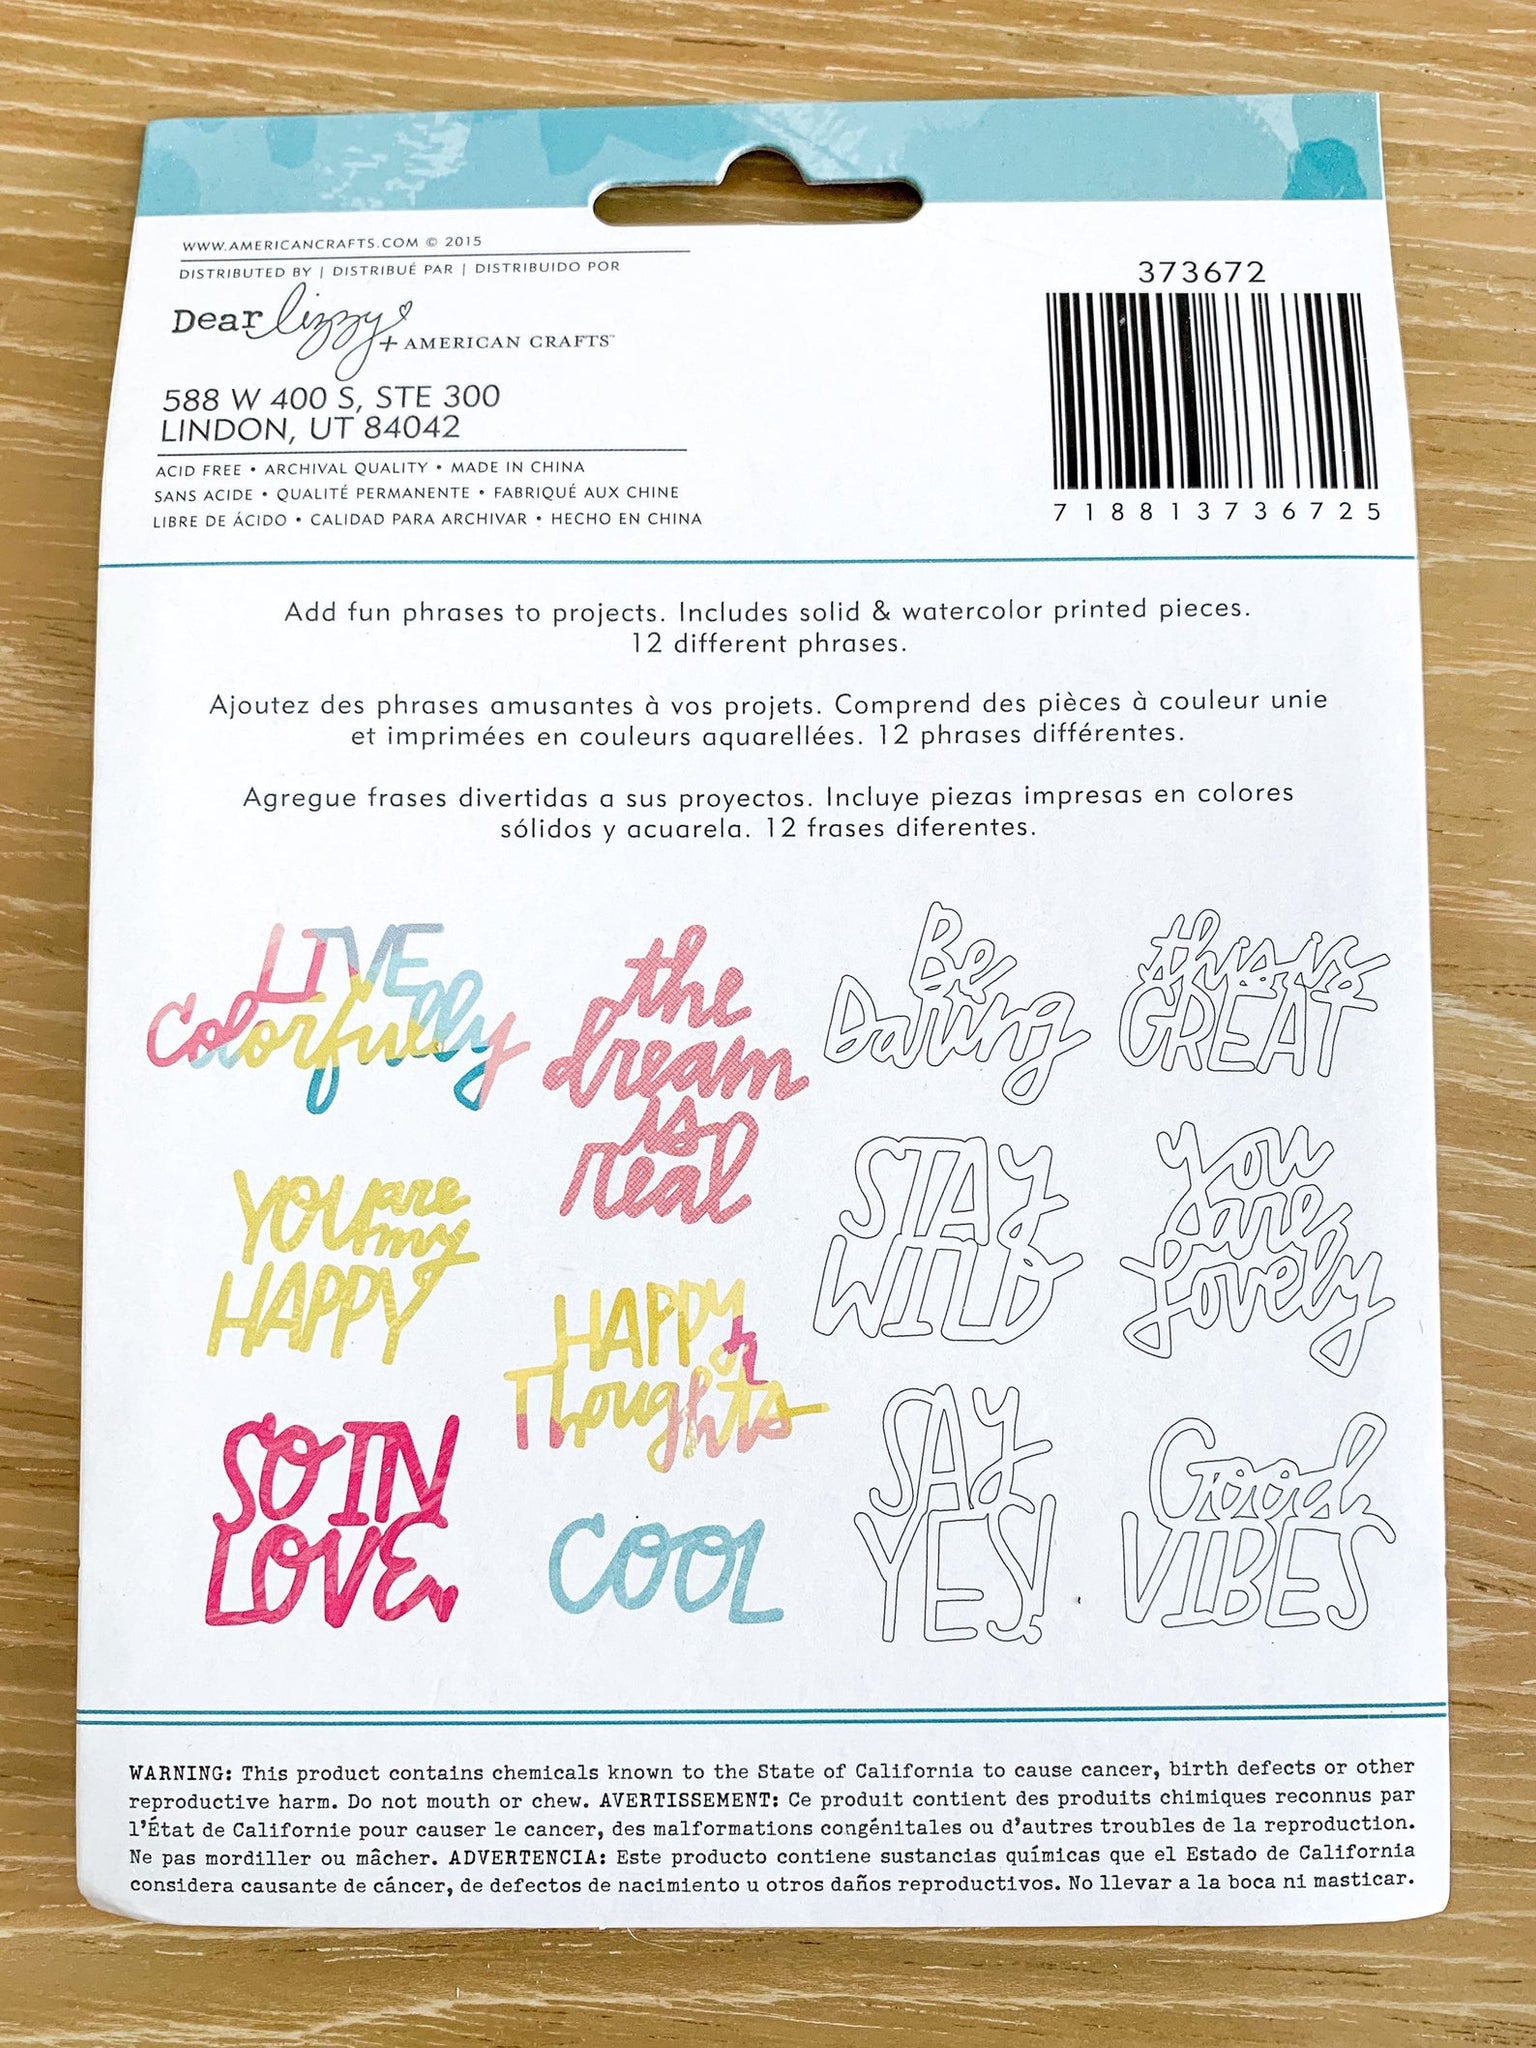 WWW.AMERICANCRAFTS.COM © 2015
DISTRIBUTED BY | DISTRIBUÉ PAR | DISTRIBUIDO POR
Dear Lizzy + AMERICAN CRAFTS™
588 W 400 S, STE 300
LINDON, UT 84042
ACID FREE • ARCHIVAL QUALITY • MADE IN CHINA
SANS ACIDE • QUALITÉ PERMANENTE • FABRIQUÉ AUX CHINE
LIBRE DE ÁCIDO • CALIDAD PARA ARCHIVAR • HECHO EN CHINA
373672
718813736725
Add fun phrases to projects. Includes solid & watercolor printed pieces.
12 different phrases.
Ajoutez des phrases amusantes à vos projets. Comprend des pièces à couleur unie
et imprimées en couleurs aquarellées. 12 phrases différentes.
Agregue frases divertidas a sus proyectos. Incluye piezas impresas en colores
sólidos y acuarela. 12 frases diferentes.
LIVE
Colorfully
the
dream
is
real
Be
Daring
this is
GREAT
YOU are
my
HAPPY
HAPPY
Thoughts
STAY
WILD
You
are
Lovely
SO IN
LOVE
COOL
SAY
YES!
Good
VIBES
WARNING: This product contains chemicals known to the State of California to cause cancer, birth defects or other
reproductive harm. Do not mouth or chew. AVERTISSEMENT: Ce produit contient des produits chimiques reconnus par
l'État de Californie pour causer le cancer, des malformations congénitales ou d'autres troubles de la reproduction.
Ne pas mordiller ou mâcher. ADVERTENCIA: Este producto contiene sustancias químicas que el Estado de California
considera causante de cáncer, de defectos de nacimiento u otros daños reproductivos. No llevar a la boca ni masticar.